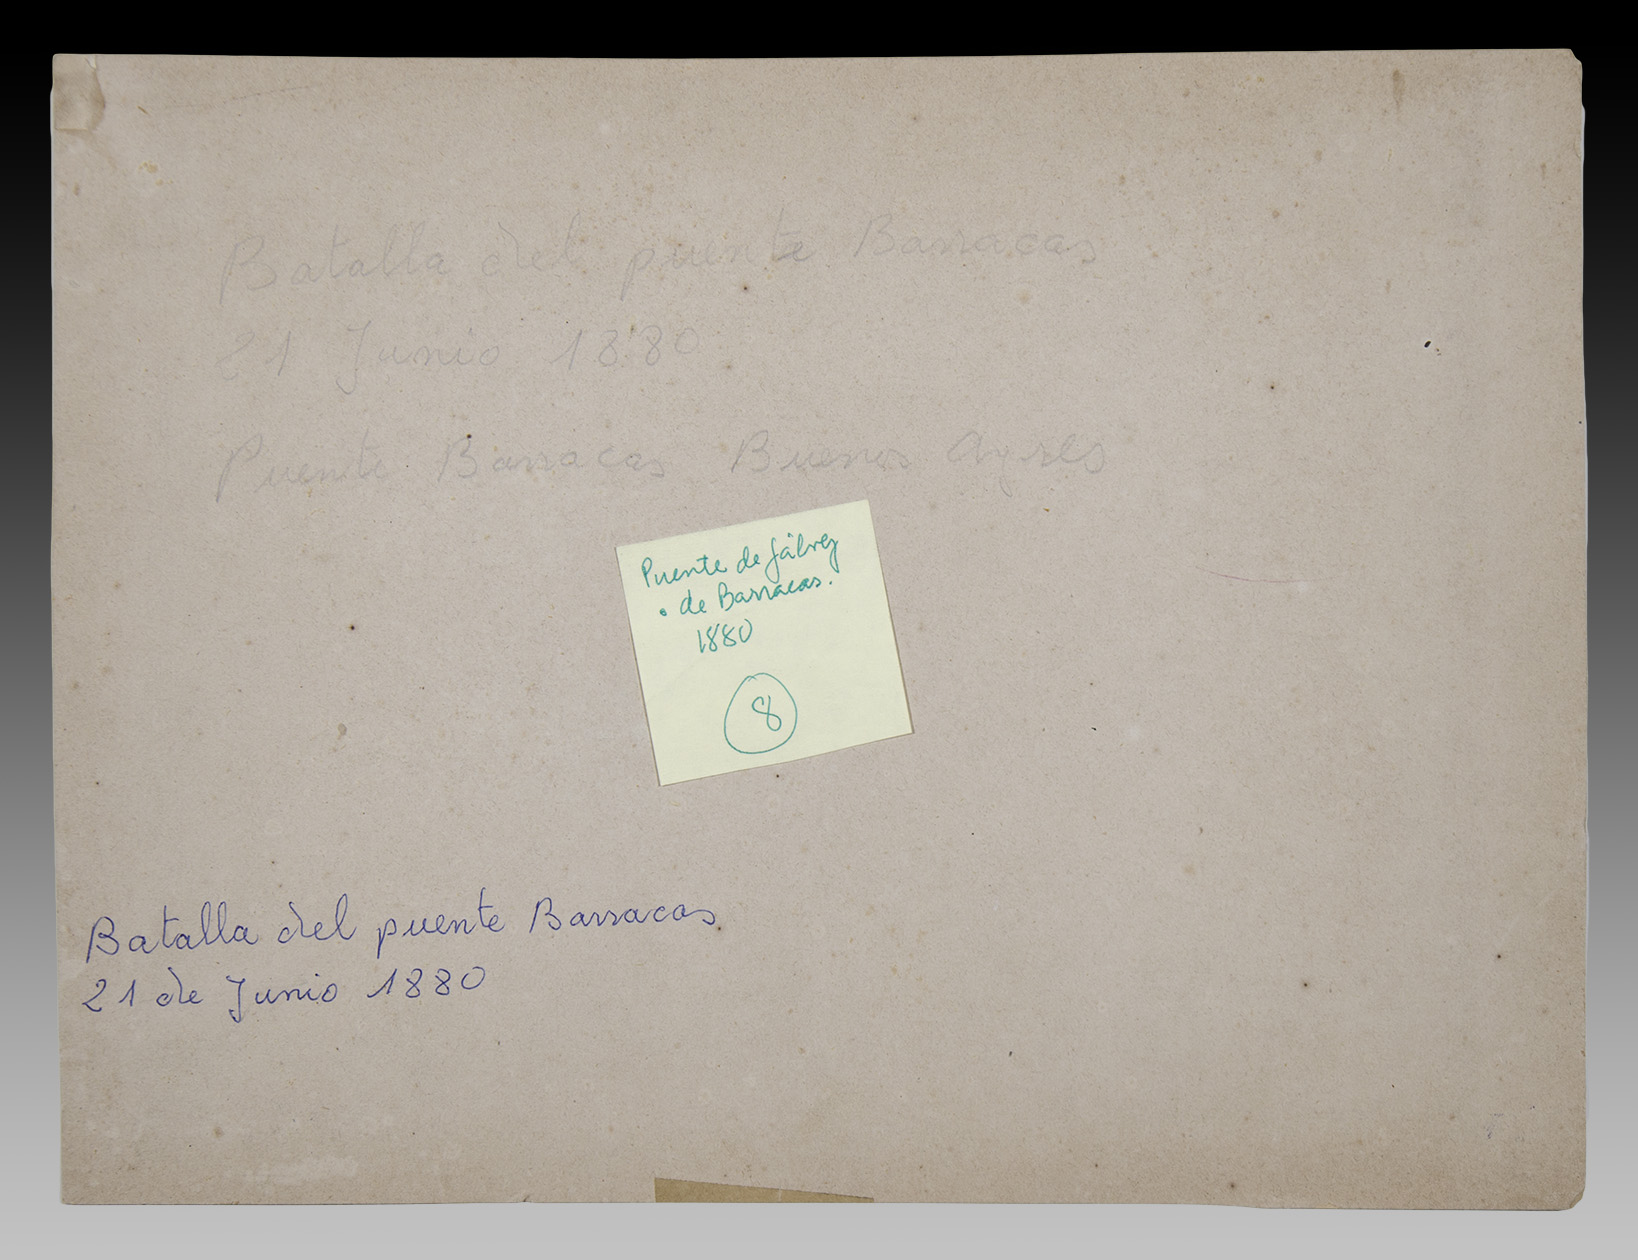 Batalla del puente Barracas
21 Junio 1880
Puente Barracas Buenos Ayres
Puente de Gálvez
o de Barracas.
1880
8
Batalla del puente Barracas
21 de Junio 1880